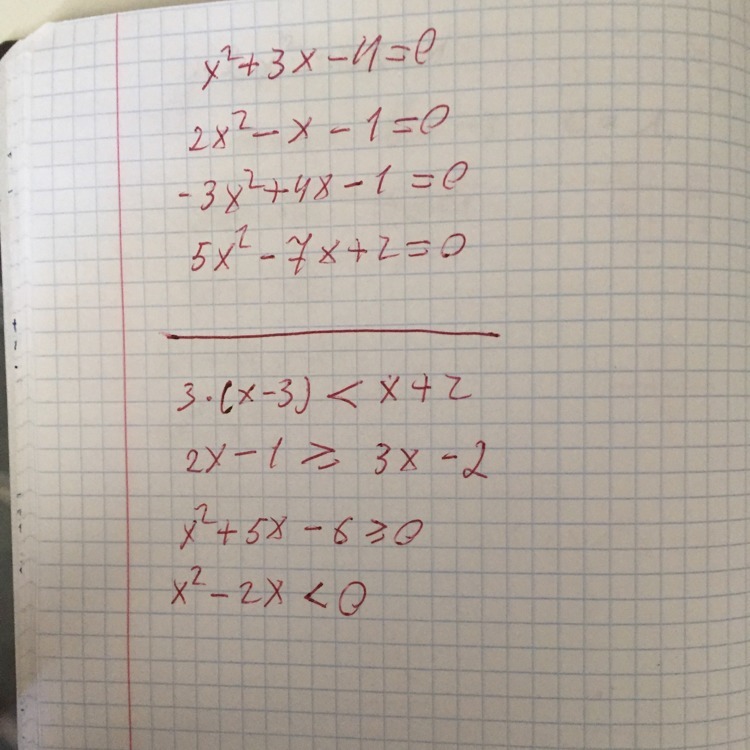 x²+3x-4=0
2x²-x-1=0
-3x²+4x-1=0
5x²-7x+2=0
3·(x-3)<x+2
2x-1≥3x-2
x²+5x-6≥0
x²-2x<0